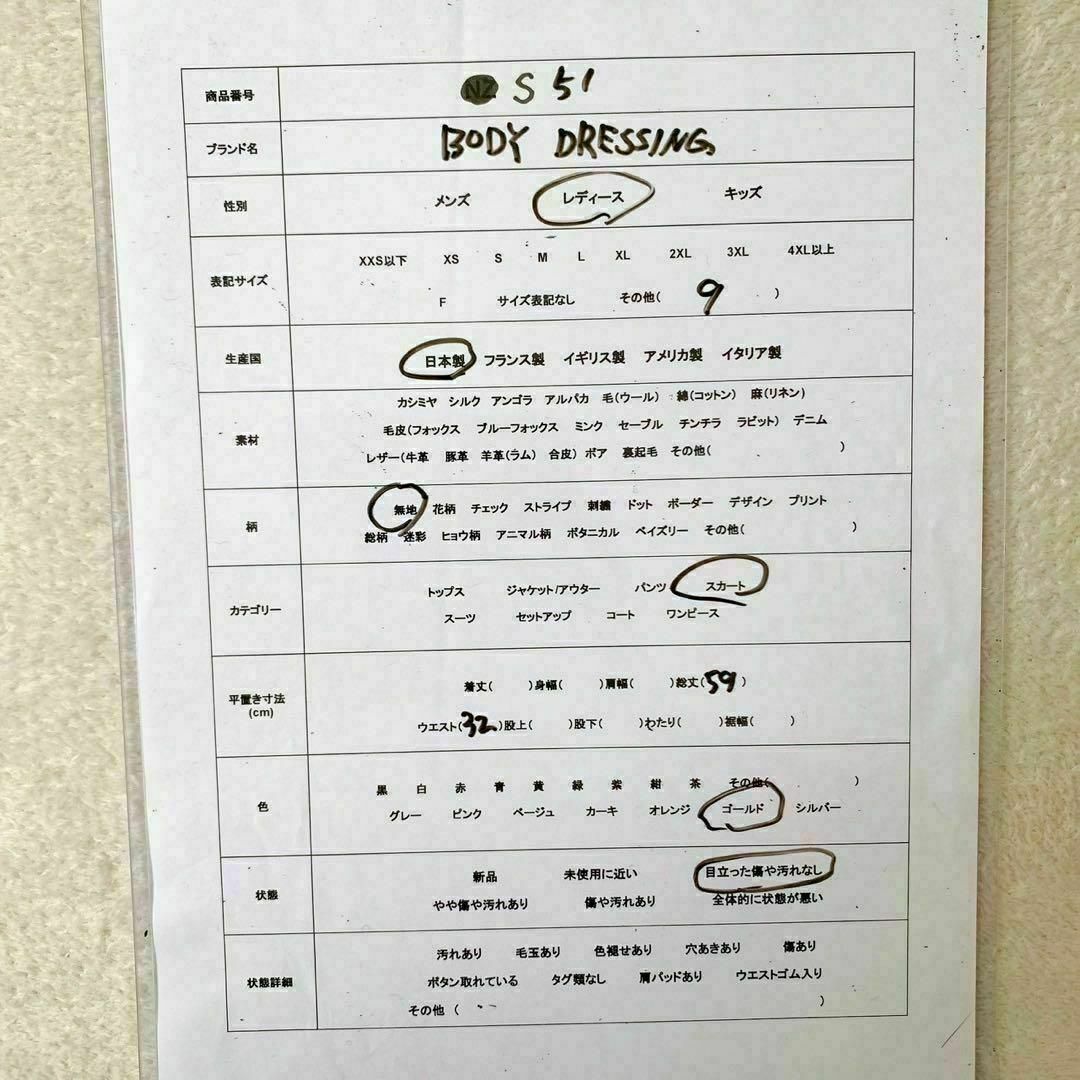 商品番号 NZ S 51
ブランド名 BODY DRESSING
性別 メンズ レディース キッズ
表記サイズ
XXS以下 XS S M L XL 2XL 3XL 4XL以上
F サイズ表記なし その他( 9 )
生産国 日本製 フランス製 イギリス製 アメリカ製 イタリア製
素材
カシミヤ シルク アンゴラ アルパカ 毛(ウール) 綿(コットン) 麻(リネン)
毛皮(フォックス ブルーフォックス ミンク セーブル チンチラ ラビット) デニム
レザー(牛革 豚革 羊革(ラム) 合皮) ボア 裏起毛 その他( )
柄
無地 花柄 チェック ストライプ 刺繍 ドット ボーダー デザイン プリント
総柄 迷彩 ヒョウ柄 アニマル柄 ボタニカル ペイズリー その他( )
カテゴリー
トップス ジャケット/アウター パンツ スカート
スーツ セットアップ コート ワンピース
平置き寸法
(cm)
着丈( )身幅( )肩幅( )総丈(59)
ウエスト(32)股上( )股下( )わたり( )裾幅( )
色
黒 白 赤 青 黄 緑 紫 紺 茶 その他( )
グレー ピンク ベージュ カーキ オレンジ ゴールド シルバー
状態
新品 未使用に近い 目立った傷や汚れなし
やや傷や汚れあり 傷や汚れあり 全体的に状態が悪い
状態詳細
汚れあり 毛玉あり 色褪せあり 穴あきあり 傷あり
ボタン取れている タグ類なし 肩パッドあり ウエストゴム入り
その他 ( )